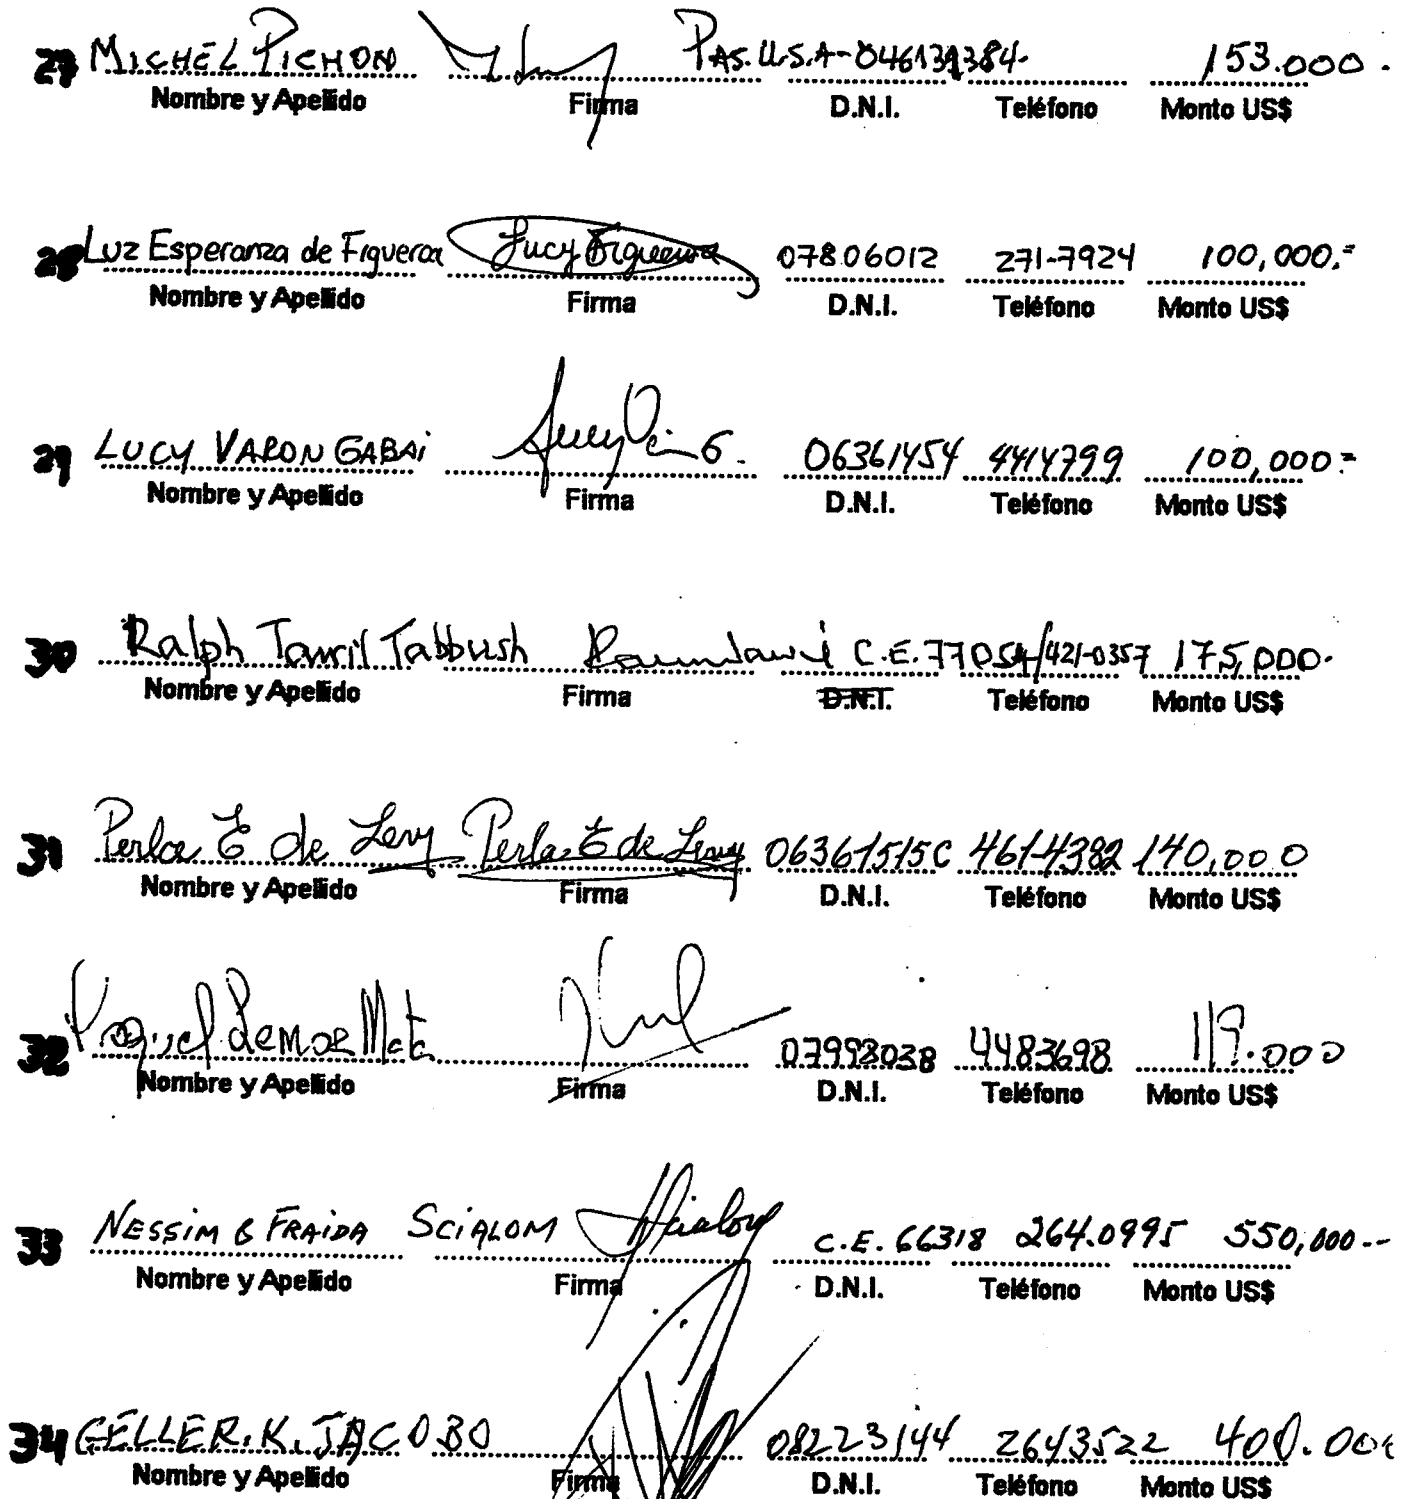 27 MICHEL PICHON PAS. U.S.A-046139384- 153.000.-
Nombre y Apellido Firma D.N.I. Teléfono Monto US$
28 Luz Esperanza de Figueroa Lucy Figueroa 07806012 271-7924 100,000.=
Nombre y Apellido Firma D.N.I. Teléfono Monto US$
29 LUCY VARON GABAi 06361454 4414799 100,000=
Nombre y Apellido Firma D.N.I. Teléfono Monto US$
30 Ralph Tawil Tabbush C.E. 77054/421-0357 175,000.
Nombre y Apellido Firma D.N.I. Teléfono Monto US$
31 Perla E de Levy Perla E de Levy 06361515C 461-4382 140,000
Nombre y Apellido Firma D.N.I. Teléfono Monto US$
32 Lemor Mata 07998038 4483698 119.000
Nombre y Apellido Firma D.N.I. Teléfono Monto US$
33 NESSIM & FRAIDA SCIALOM Scialom C.E. 66318 264.0995 550,000.--
Nombre y Apellido Firma D.N.I. Teléfono Monto US$
34 GELLER. K. JACOBO 08223144 2643522 400.000
Nombre y Apellido Firma D.N.I. Teléfono Monto US$